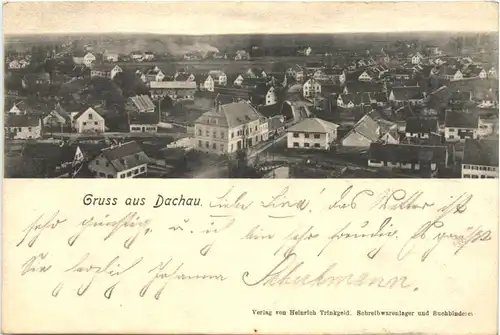 Gruss aus Dachau. Liebe Lina! das Wetter ist
sehr günstig u. ich bin sehr freudig. Es grüßt
Sie herzlich Johanna Schuhmann.
Verlag von Heinrich Trinkgeld, Schreibwarenlager und Buchbinderei